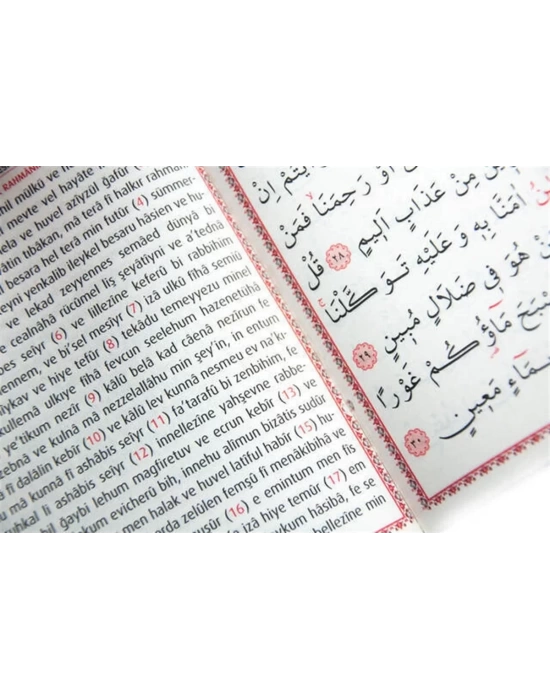 RAHMAN
mil mülkü ve
meyte vel hayâte
ve huvel azîyzül gafûr
tıbâkan, mâ terâ fî halkır rahman
besara hel terâ min futûr (4) sümmer-
yenkalib ileykel besaru hâsien ve hu-
ve lekad zeyyennes semâed dünyâ bi
cealnâhâ rücûmel liş şeyâtîyni ve a'tednâ
bes seîyr (6) ve lillezîne keferû bi rabbihim
ennem, ve bi'sel mesîyr (7) izâ ulkû fîhâ semiû
îykav ve hiye tefûr (8) tekâdu temeyyezu minel
kullemâ ulkıye fîhâ fevcun seelehum hazenetühâ
e'tikum nezîr (9) kâlû belâ kad câenâ nezîrun fe
zebnâ ve kulnâ mâ nezzelallâhu min şey'in, in entum
fî dalâlin kebîr (10) ve kâlû lev kunnâ nesmeu ev na'k-
mâ kunnâ fî ashâbis seîyr (11) fa'terafû bi zenbihim, fe
uhkal li ashâbis seîyr (12) innellezîne yahşevne rabbe-
bil ğaybi lehum magfiretuv ve ecrun kebîr (13) ve
kum evicherû bih, innehu alîmun bizâtis sudûr
men halak ve huvel latîful habîr (15) hu-
arda zelûlen femşû fî menâkibihâ ve
uşûr (16) e emintum men fis
e izâ hiye temûr (17) em
aykum hâsibâ, fe se
bellezîne min
اِنْ
اَوْ رَحِمَنَا فَمَنْ
مِنْ عَذَابٍ اَلِيمٍ ﴿٢٨﴾ قُلْ
اٰمَنَّا بِهِ وَعَلَيْهِ تَوَكَّلْنَا
هُوَ فِى ضَلَالٍ مُبِينٍ ﴿٢٩﴾
مَاؤُكُمْ غَوْرًا
مَعِينٍ ﴿٣٠﴾